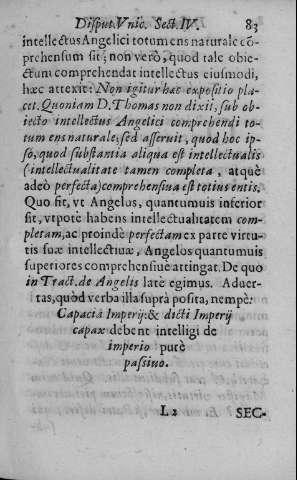 Disput. Vnic. Sect. IV. 83
intellectus Angelici totum ens naturale cõ-
prehensum sit; non verò, quod tale obie-
ctum comprehendat intellectus eiusmodi,
hæc attexit: Non igitur hæc expositio pla-
cet. Quoniam D. Thomas non dixit, sub ob-
iecto intellectus Angelici comprehendi to-
tum ens naturale; sed asseruit, quod hoc ip-
so, quod substantia aliqua est intellectualis
(intellectualitate tamen completa, atquè
adeò perfecta) comprehensiua est totius entis.
Quo sit, vt Angelus, quantumuis inferior
sit, vtpotè habens intellectualitatem com-
pletam, ac proindè perfectam ex parte virtu-
tis suæ intellectiuæ, Angelos quantumuis
superiores comprehensiuè attingat. De quo
in Tract. de Angelis latè egimus. Aduer-
tas, quòd verba illa suprà posita, nempè:
Capacia Imperij: & dicti Imperij
capax debent intelligi de
imperio purè
passiuo.
L2 SEC-